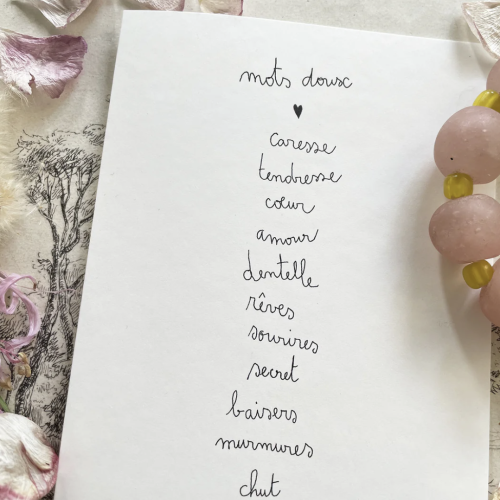 mots doux
♥
caresse
tendresse
cœur
amour
dentelle
rêves
sourires
secret
baisers
murmures
chut